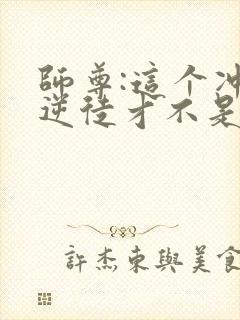 師尊:這个冲
逆徒才不是
許杰東與美食